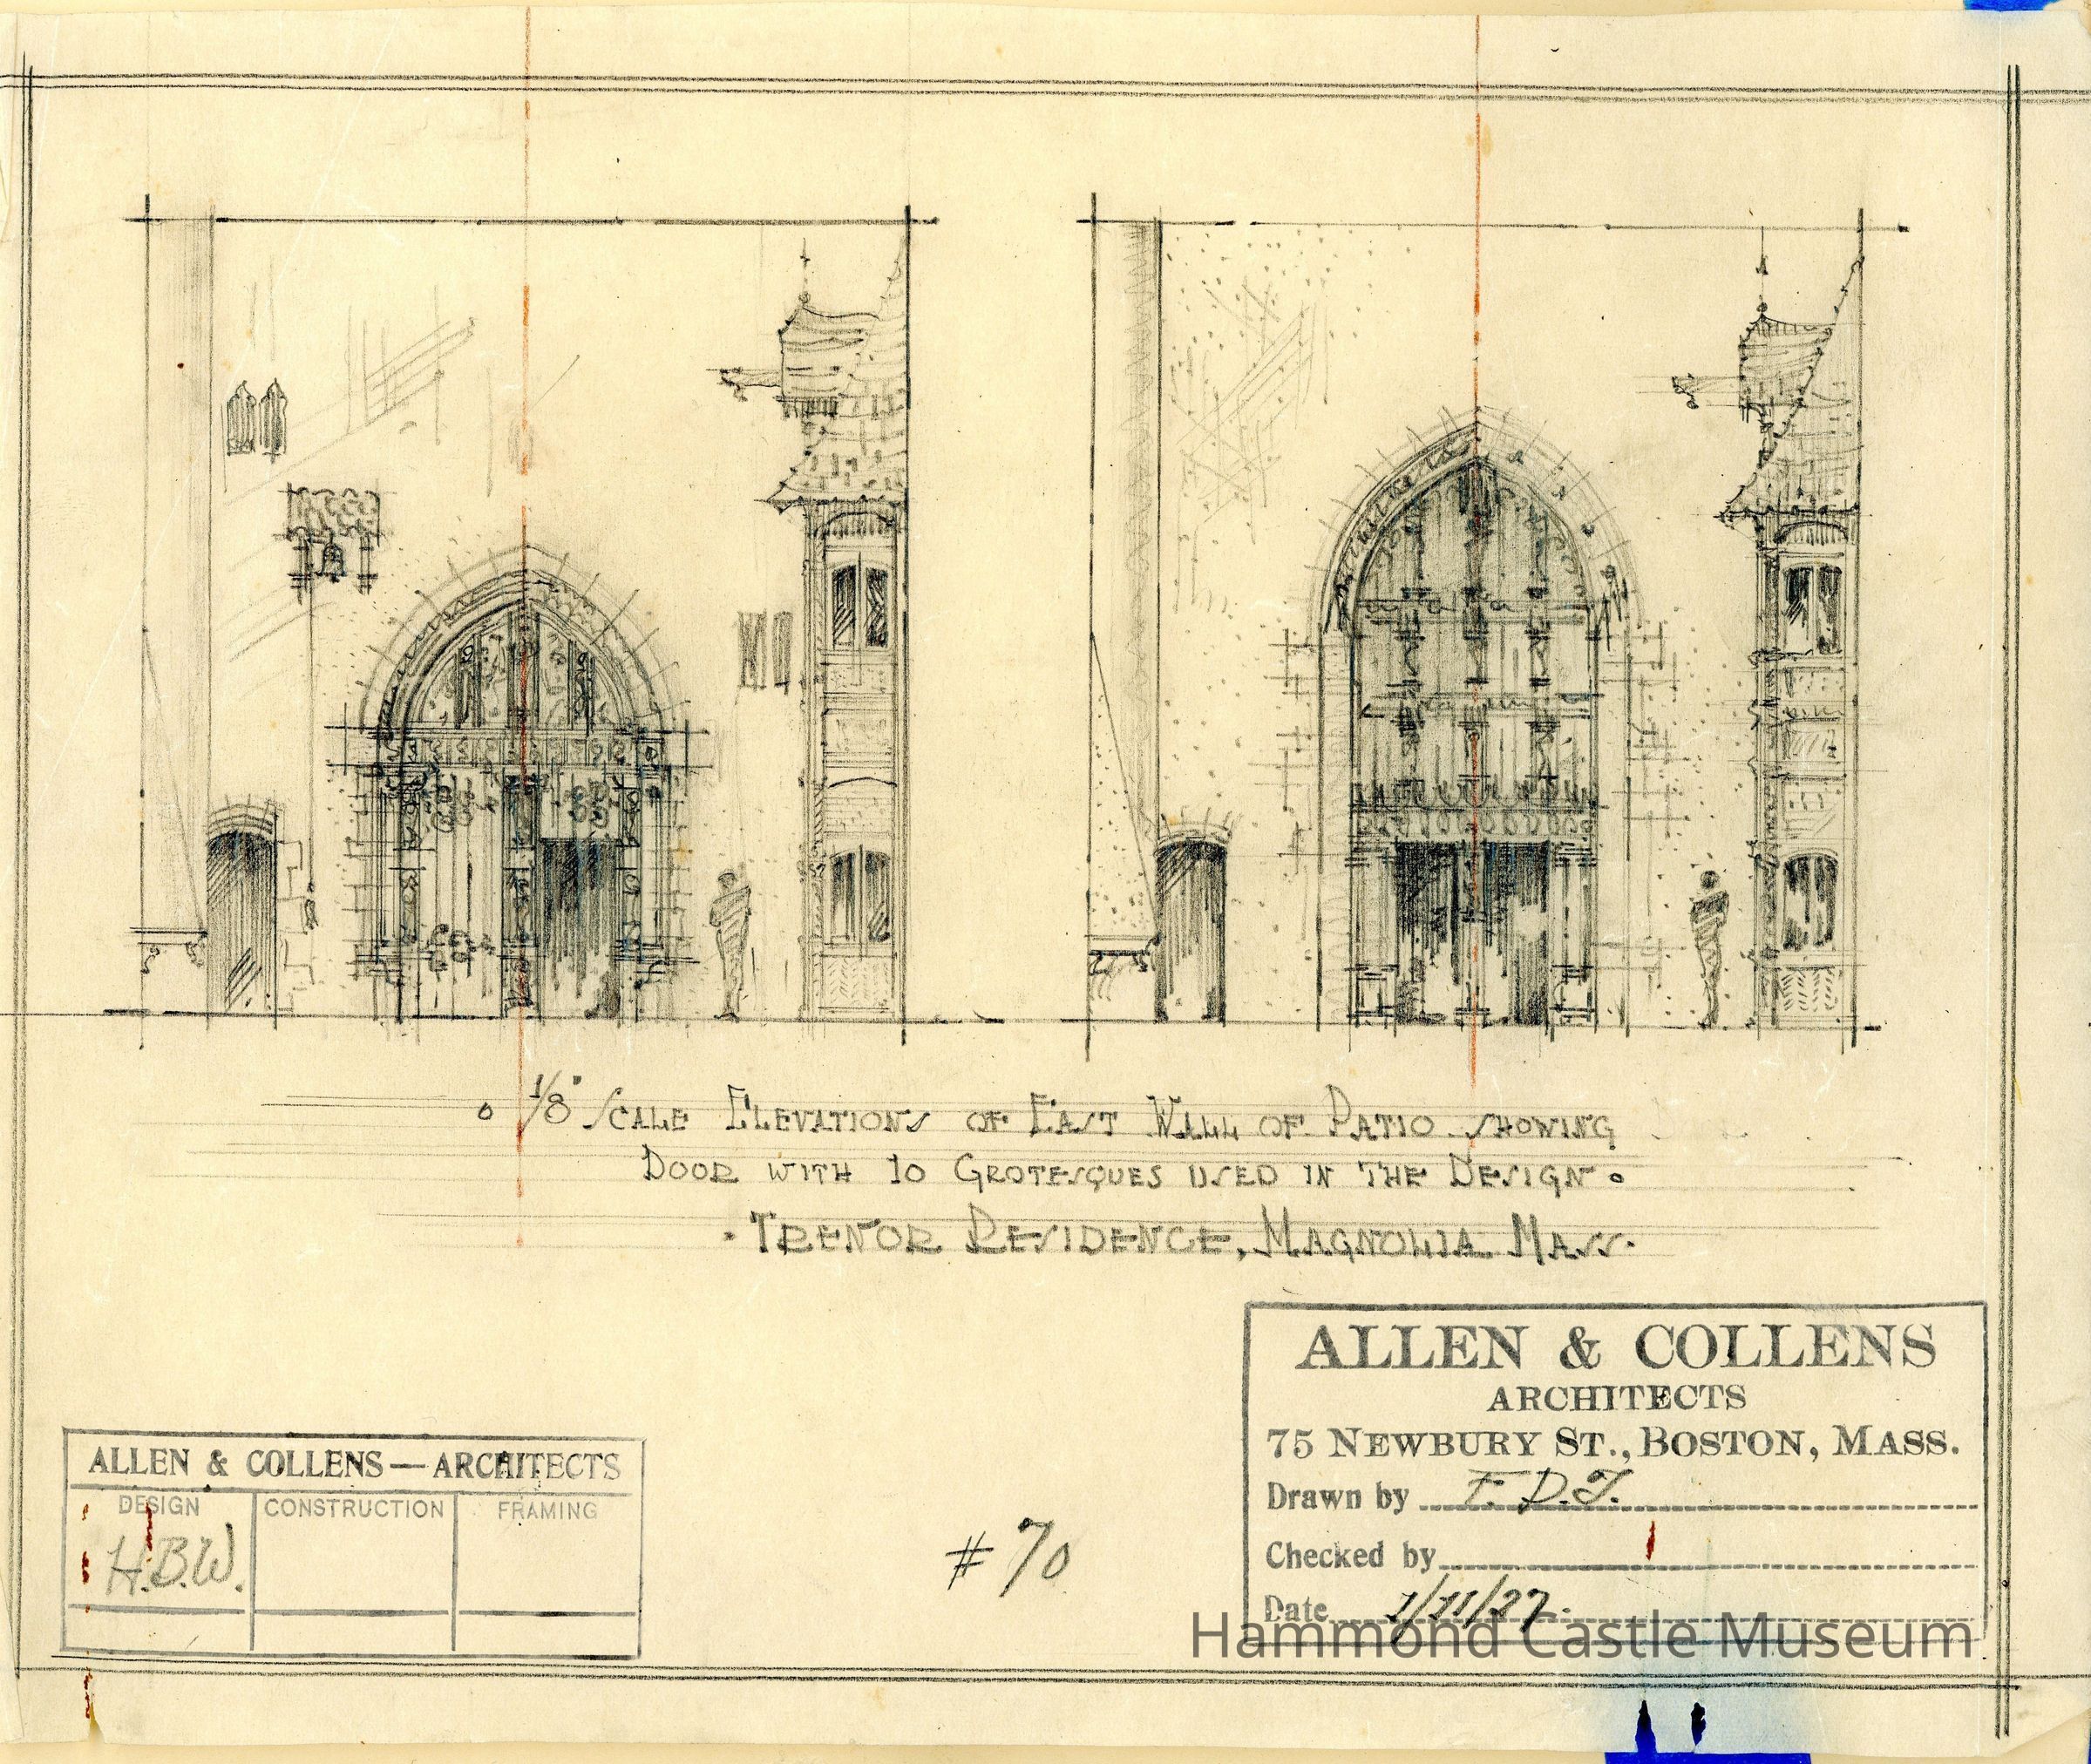 1/8" Scale Elevations of East Wall of Patio showing
Door with 10 Grotesques used in the Design.
Trenor Residence, Magnolia Mass.
ALLEN & COLLENS
ARCHITECTS
75 NEWBURY ST., BOSTON, MASS.
Drawn by F. D. T.
Checked by
Date 1/11/27.
ALLEN & COLLENS — ARCHITECTS
DESIGN CONSTRUCTION FRAMING
H.B.W.
# 70
Hammond Castle Museum